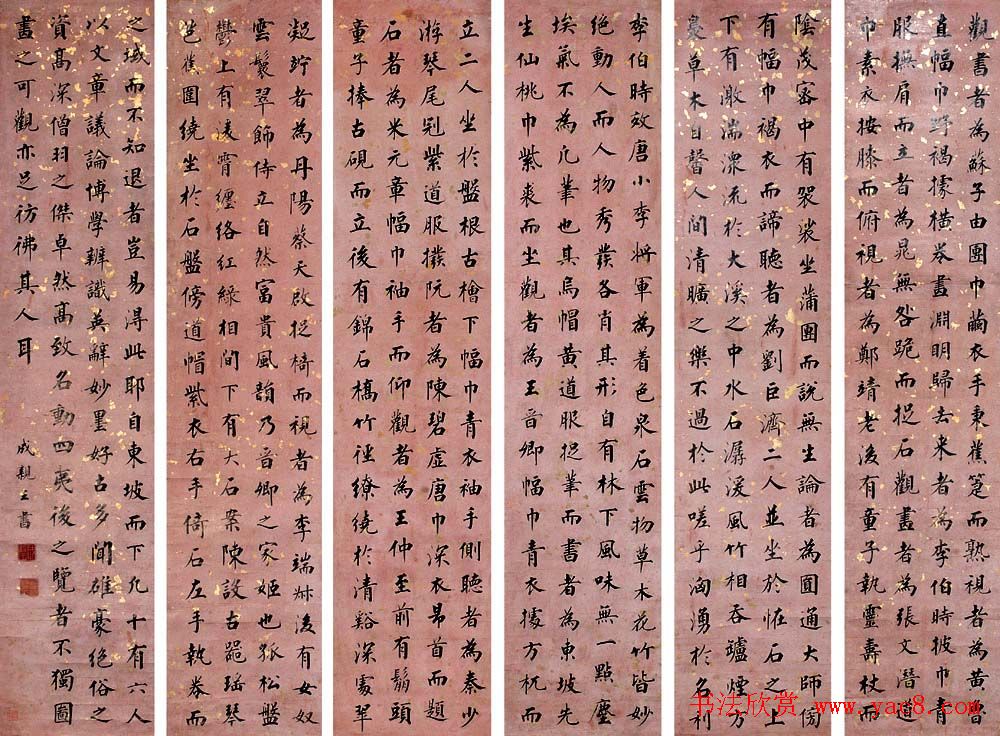 觀書者為蘇子由團巾繭衣手秉蕉箑而熟視者為黃魯
直幅巾野褐據橫卷畫淵明歸去来者為李伯時披巾青
服撫肩而立者為晁無咎跪而捉石觀畫者為張文潛道
巾素衣按膝而俯視者為鄭靖老後有童子執靈壽杖而
陰茂密中有袈裟坐蒲團而說無生論者為圓通大師傍
有幅巾褐衣而諦聽者為劉巨濟二人並坐於怪石之上
下有激湍潀流於大溪之中水石潺湲風竹相吞爐煙方
裊草木自馨人間清曠之樂不過於此嗟乎洶湧於名利
李伯時效唐小李將軍為着色泉石雲物草木花竹皆妙
絶動人而人物秀發各肖其形自有林下風味無一點塵
埃氣不為凡筆也其烏帽黃道服捉筆而書者為東坡先
生仙桃巾紫裘而坐觀者為王晉卿幅巾青衣據方杌而
立二人坐於盤根古檜下幅巾青衣袖手側聽者為秦少
游琴尾冠紫道服撥阮者為陳碧虛唐巾深衣昂首而題
石者為米元章幅巾袖手而仰觀者為王仲至前有鬅頭
童子捧古硯而立後有錦石橋竹徑繚繞於清谿深處翠
竚者為丹陽蔡天啟捉椅而視者為李端叔後有女奴
雲鬟翠飾侍立自然富貴風韻乃晉卿之家姬也孤松盤
鬱上有凌霄纏絡紅綠相間下有大石案陳設古器瑤琴
芭蕉圍繞坐於石盤傍道帽紫衣右手倚石左手執卷而
之域而不知退者豈易得此耶自東坡而下凡十有六人
以文章議論博學辨識英辭妙墨好古多聞雄豪絶俗之
資高深僧羽之傑卓然高致名動四夷後之覽者不獨圖
畫之可觀亦足彷彿其人耳
成親王書
书法欣赏 www.yac8.com